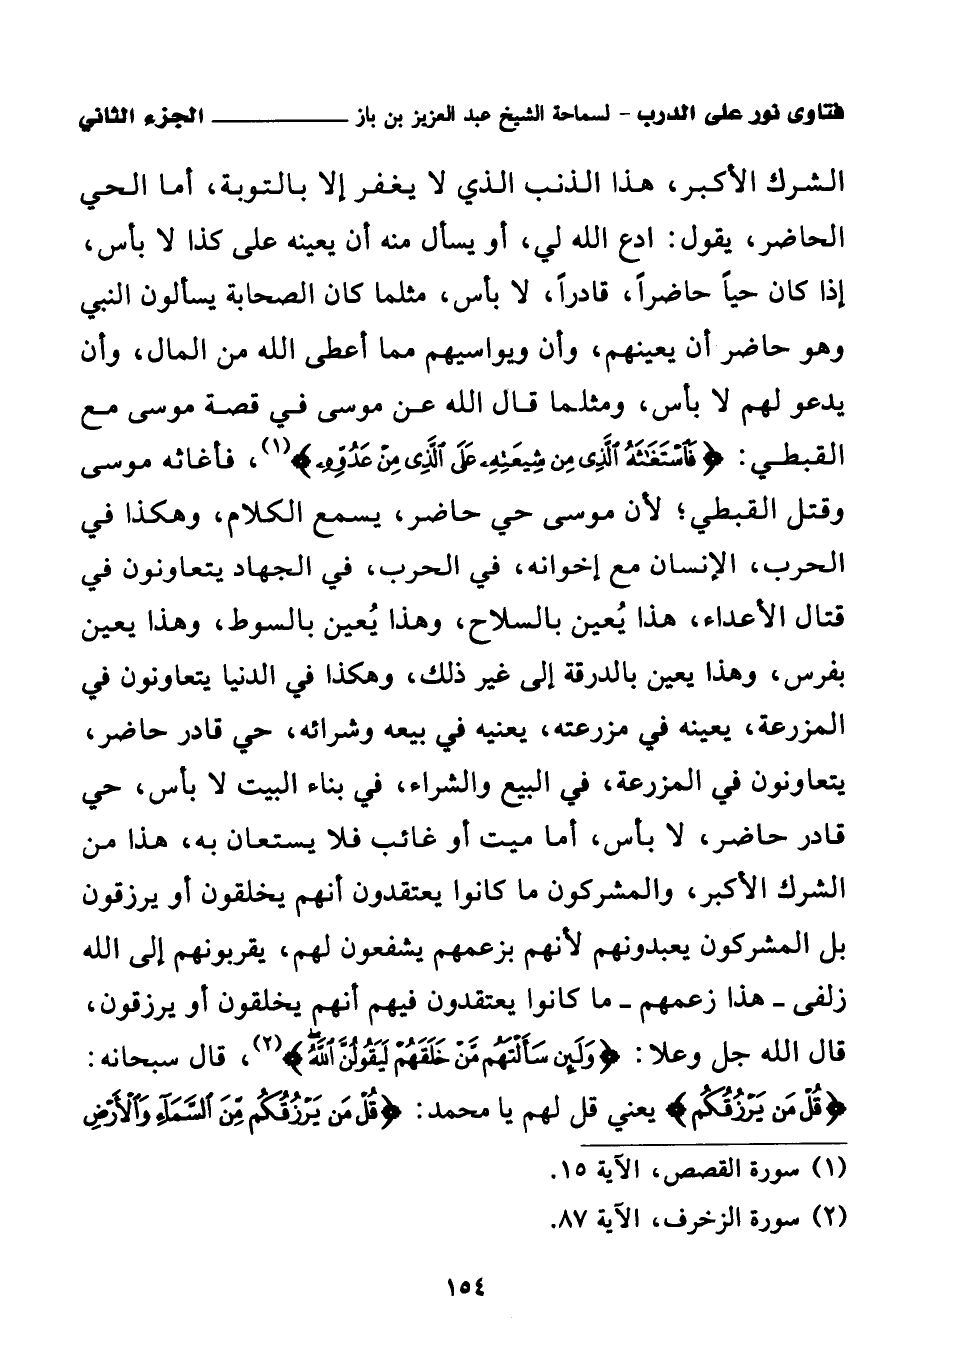 فتاوى نور على الدرب - لسماحة الشيخ عبد العزيز بن باز ـــــــــــــــــ الجزء الثاني
الشرك الأكبر، هذا الذنب الذي لا يغفر إلا بالتوبة، أما الحي
الحاضر، يقول: ادع الله لي، أو يسأل منه أن يعينه على كذا لا بأس،
إذا كان حياً حاضراً، قادراً، لا بأس، مثلما كان الصحابة يسألون النبي
وهو حاضر أن يعينهم، وأن ويواسيهم مما أعطى الله من المال، وأن
يدعو لهم لا بأس، ومثلما قال الله عن موسى في قصة موسى مع
القبطي: ﴿فَٱسْتَغَٰثَهُ ٱلَّذِى مِن شِيعَتِهِۦ عَلَى ٱلَّذِى مِنْ عَدُوِّهِۦ﴾(١)، فأغاثه موسى
وقتل القبطي؛ لأن موسى حي حاضر، يسمع الكلام، وهكذا في
الحرب، الإنسان مع إخوانه، في الحرب، في الجهاد يتعاونون في
قتال الأعداء، هذا يُعين بالسلاح، وهذا يُعين بالسوط، وهذا يعين
بفرس، وهذا يعين بالدرقة إلى غير ذلك، وهكذا في الدنيا يتعاونون في
المزرعة، يعينه في مزرعته، يعنيه في بيعه وشرائه، حي قادر حاضر،
يتعاونون في المزرعة، في البيع والشراء، في بناء البيت لا بأس، حي
قادر حاضر، لا بأس، أما ميت أو غائب فلا يستعان به، هذا من
الشرك الأكبر، والمشركون ما كانوا يعتقدون أنهم يخلقون أو يرزقون
بل المشركون يعبدونهم لأنهم بزعمهم يشفعون لهم، يقربونهم إلى الله
زلفى - هذا زعمهم - ما كانوا يعتقدون فيهم أنهم يخلقون أو يرزقون،
قال الله جل وعلا: ﴿وَلَئِن سَأَلْتَهُم مَّنْ خَلَقَهُمْ لَيَقُولُنَّ ٱللَّهُ ۖ﴾(٢)، قال سبحانه:
﴿قُلْ مَن يَرْزُقُكُم﴾ يعني قل لهم يا محمد: ﴿قُلْ مَن يَرْزُقُكُم مِّنَ ٱلسَّمَآءِ وَٱلْأَرْضِ
(١) سورة القصص، الآية ١٥.
(٢) سورة الزخرف، الآية ٨٧.
١٥٤